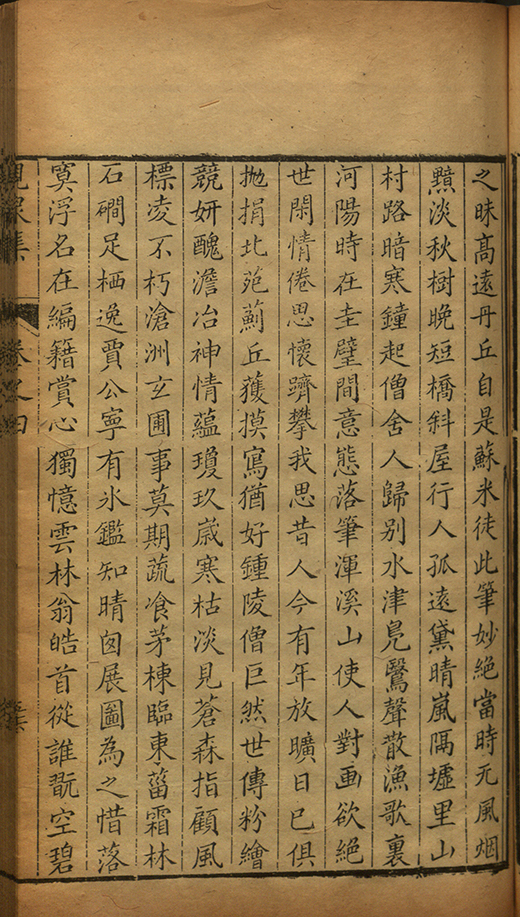 之昧高遠丹丘自是蘇米徒此筆妙絶當時无風烟
黯淡秋樹晚短橋斜屋行人孤遠黛晴嵐隔墟里山
村路暗寒鐘起僧舍人歸別水津鳧鷖聲散漁歌裏
河陽時在圭璧間意態落筆渾溪山使人對画欲絶
世閑情倦思懷躋攀我思昔人今有年放曠日已俱
抛捐北苑薊丘獲摸寫猶好鍾陵僧巨然世傳粉繪
競妍醜澹冶神情蘊瓊玖嵗寒枯淡見蒼森指顧風
標凌不朽滄洲玄圃事莫期蔬飡茅棟臨東菑霜林
石磵足栖逸賈公寧有氷鑑知晴囱展圖為之惜落
寞浮名在編籍賞心獨憶雲林翁皓首從誰翫空碧
卷之四